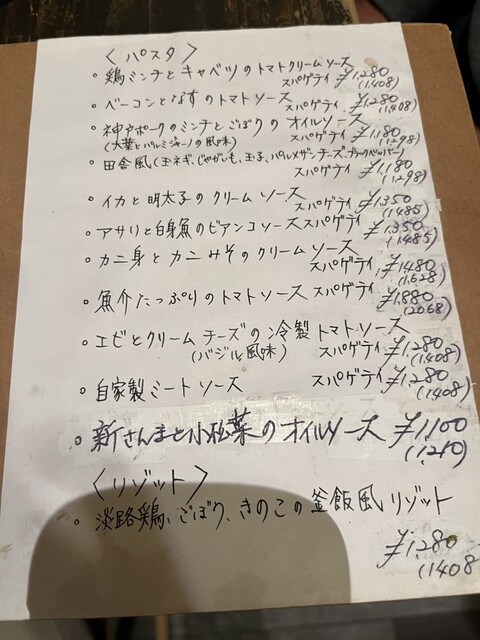 〈パスタ〉
◦ 鶏ミンチとキャベツのトマトクリームソース
スパゲティ ¥1,280
(1,408)
◦ ベーコンとなすのトマトソース
スパゲティ ¥1,280
(1,408)
◦ 神戸ポークのミンチとごぼうのオイルソース
(大葉とパルミジャーノの風味) スパゲティ ¥1,180
(1,298)
◦ 田舎風(玉ネギ、じゃがいも、玉子、パルメザンチーズ、ブラックペッパー)
スパゲティ ¥1,180
(1,298)
◦ イカと明太子のクリームソース
スパゲティ ¥1,350
(1,485)
◦ アサリと白身魚のビアンコソーススパゲティ ¥1,350
(1,485)
◦ カニ身とカニみそのクリームソース
スパゲティ ¥1,480
(1,628)
◦ 魚介たっぷりのトマトソース スパゲティ ¥1,880
(2,068)
◦ エビとクリームチーズの冷製トマトソース
(バジル風味) スパゲティ ¥1,280
(1,408)
◦ 自家製ミートソース スパゲティ ¥1,280
(1,408)
◦ 新さんまと小松菜のオイルソース ¥1,100
(1,210)
〈リゾット〉
◦ 淡路鶏、ごぼう、きのこの釜飯風リゾット
¥1,280
(1,408